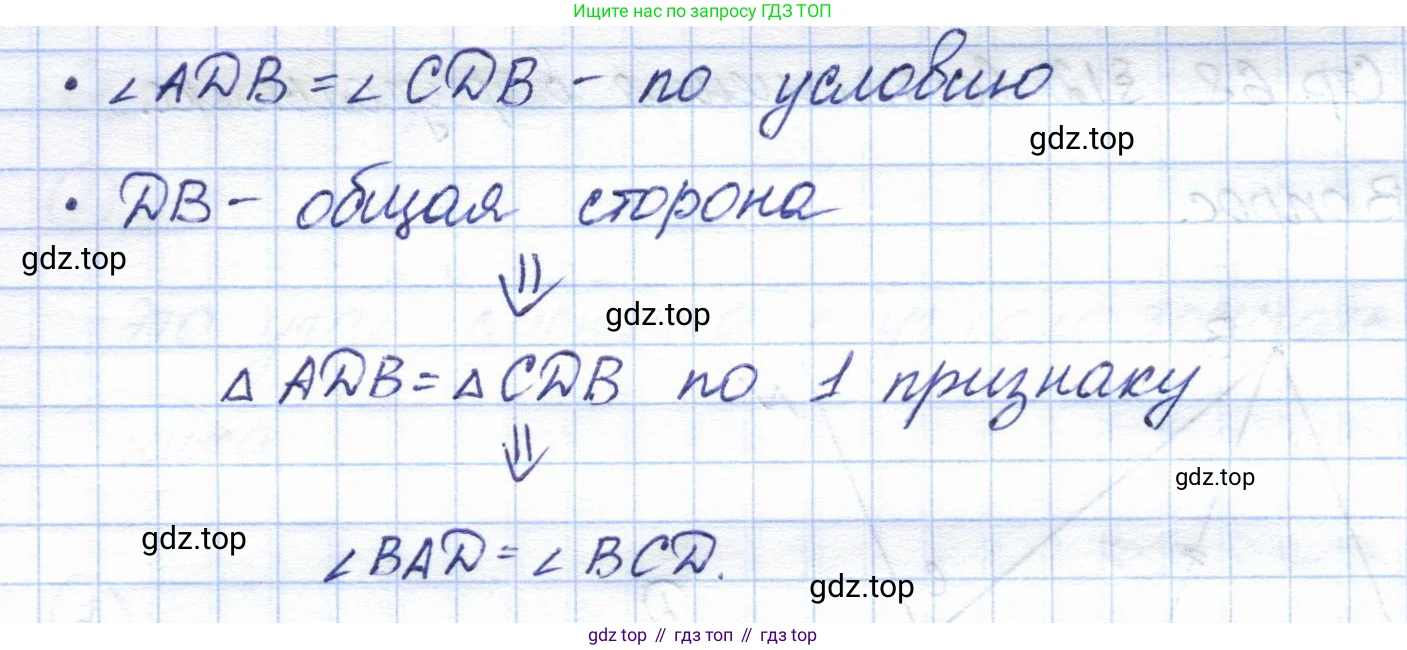 Ищите нас по запросу ГДЗ ТОП
• ∠ADB = ∠CDB - по условию
gdz.top
• DB - общая сторона
gdz.top
⇓
gdz.top
△ADB = △CDB по 1 признаку
⇓
gdz.top
gdz.top
∠BAD = ∠BCD.
gdz.top
gdz top // гдз топ // гдз top